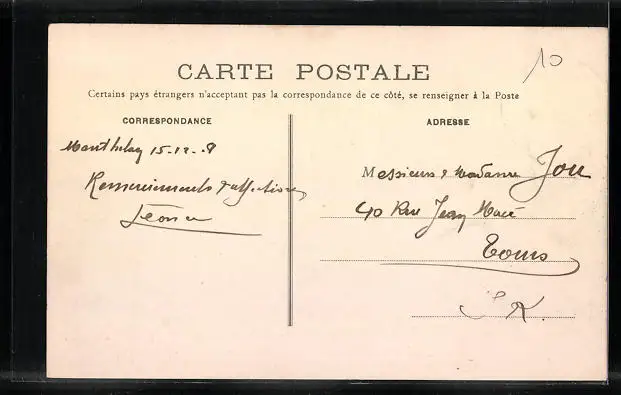 10
CARTE POSTALE
Certains pays étrangers n'acceptant pas la correspondance de ce côté, se renseigner à la Poste
CORRESPONDANCE
Manthelan 15-12-8
Remerciements & affections
Léonce
ADRESSE
Messieurs & Madame Jou
40 Rue Jean Macé
Tours